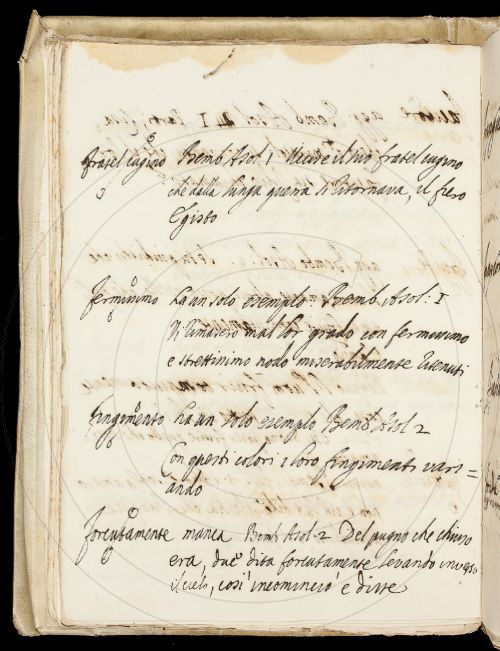 fratel cugino Bemb. Asol. 1 Uccise il suo fratel cugino
che dalla lunga guerra si ritornava, il fiero
Egisto
fermissimo ha un solo esempio. Bemb. Asol: 1
Vi rimasero mal lor grado con fermissimo
e strettissimo nodo miserabilmente ritenuti
fingimento ha un solo esempio Bemb. Asol. 2
Con questi colori i loro fingimenti vari=
ando
forcutamente manca Bemb. Asol. 2 Del pugno che chiuso
era, due dita forcutamente levando inverso
il cielo, così incominciò e disse